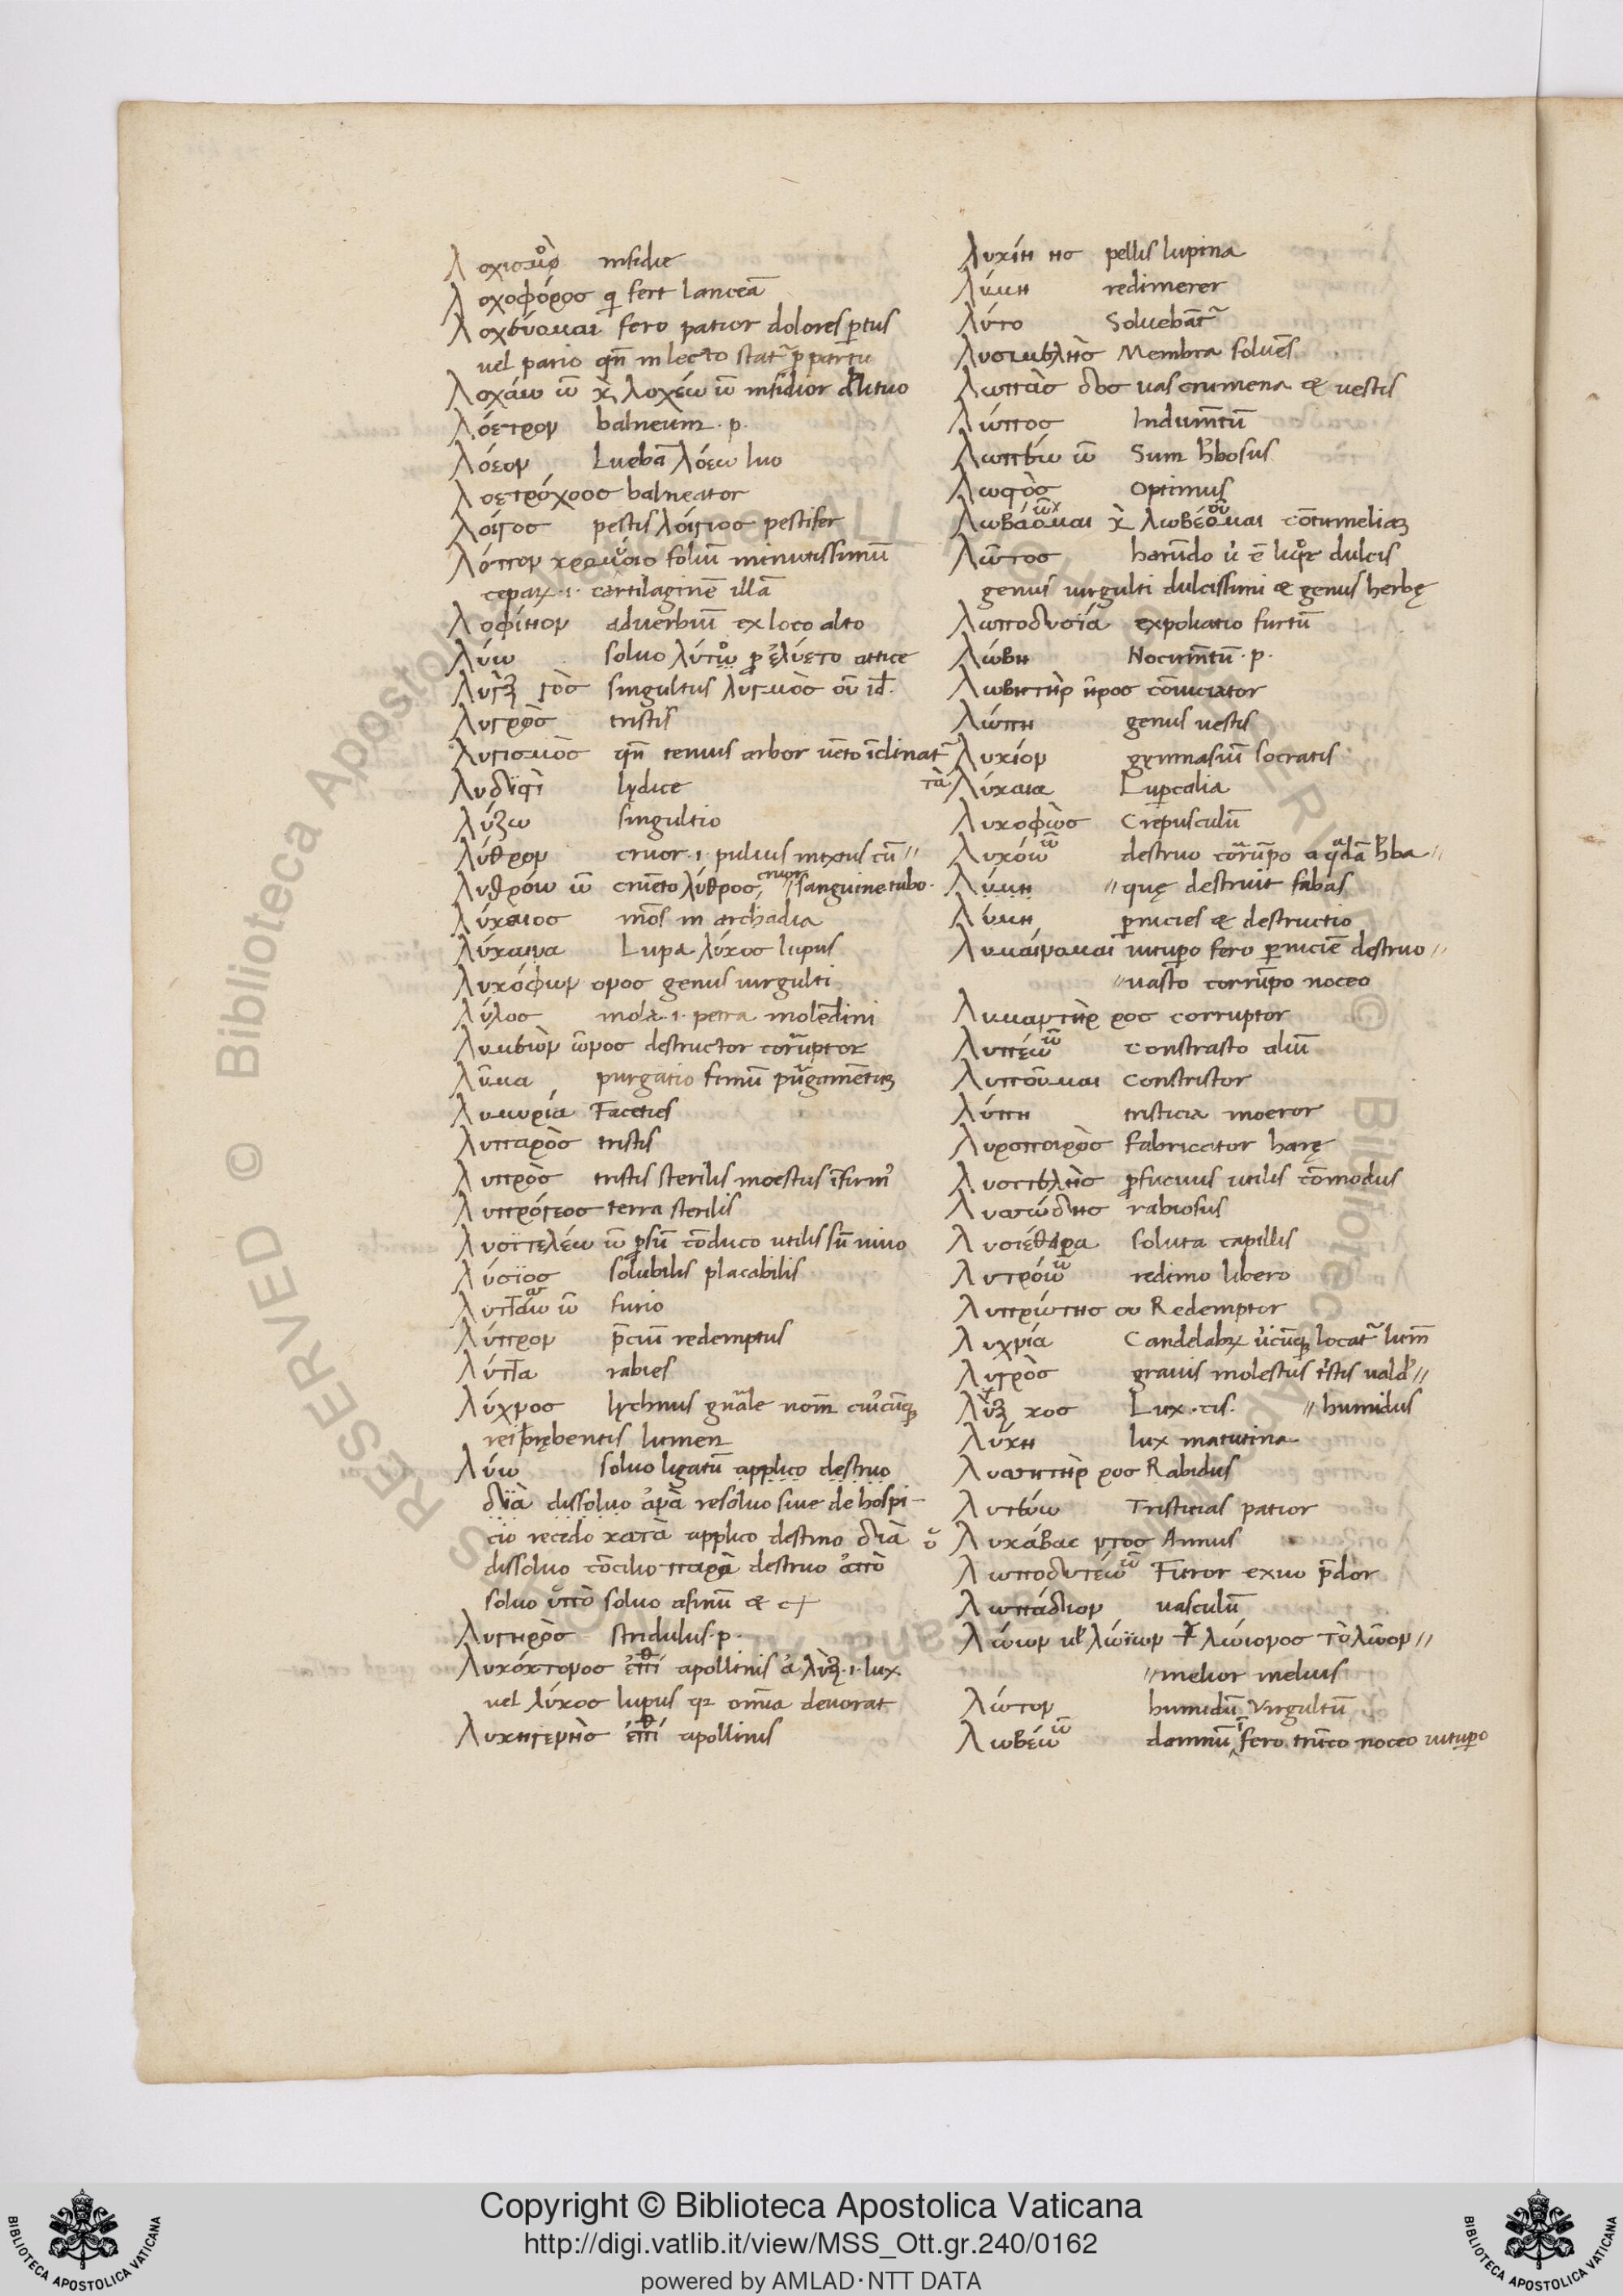 Λοχισμὸ insidie
Λοχοφόρος q fert lanceā
Λοχεύομαι fero patior dolores ptus
uel pario qn̄ in lecto statr̄ p partu
Λοχάω ῶ κ λοχέω ῶ insidior
Λόετρον balneum · p ·
Λόεον Luebā λόεω luo
Λοετρόχοος balneator
Λόιγος pestis λόιγιος pestifer
Λόπον foliū minutissimū
cepaꝝ ·i· cartilaginē illā
Λοφίηον aduerbiū ex loco alto
Λύω soluo λύτο p ἐλύετο attice
Λὺγξ γὸς singultus λυγμὸς οῦ id.
Λυγρὸς tristis
Λυγισμὸς qn̄ tenuis arbor uēto īclinatr̄
Λυδϊςὶ lydice
Λύζω singultio
Λύθρον cruor ·i· puluis mixtus cū //
Λυθρόω ῶ cruēto λύθρος cruor // sanguine tabo ·
Λύκαιος mōs in archadia
Λύκαινα Lupa λύκος lupus
Λυκόφων ονος genus uirgulti
Λύλος mola ·i· petra molēdini
Λυμεὼν ῶνος destructor corruptor
Λῦμα purgatio fimū purgamētum
Λυμυρία Faceties
Λυπαρὸς tristis
Λυπρὸς tristis sterilis moestus īfirm9
Λυπρόγεος terra sterilis
Λυσϊτελέω ῶ psū cōduco utilis sū iuuo
Λύσϊος solubilis placabilis
Λυττάω ῶ furio
Λύτρον pciū redemptus
Λύττα rabies
Λύχνος lychnus gnāle nomē cuiuscūq
rei prębentis lumen
Λύω soluo ligatū applico destruo
δϊὰ dissoluo ἀνὰ resoluo siue de hospi-
cio recedo κατὰ applico destruo διὰ
dissoluo cōcilio παρὰ destruo ἀπὸ
soluo ὑπὸ soluo asinū et c+
Λυγηρὸς stridulus · p ·
Λυκόκτονος ἐπί apollinis ἀ λὺξ ·i· lux
uel λύκος lupus qz omīa deuorat
Λυκηγενὴς ἐπί apollinis
Λυκίη ης pellis lupina
Λύμη redimerer
Λύτο Soluebātr̄
Λυσιμελὴς Membra soluēs
Λωπὰς δος uas crumena et uestis
Λώπος Indumētū
Λωπεύω ῶ Sum hbosus
Λωςὸς Optimus
Λωβάομαι κ λωβέομαι cōtumeliam
Λῶτος harūdo
genus uirgulti dulcissimi et genus herbę
Λωποδυσία expoliatio furtū
Λώβη Nocumētū · p ·
Λωβητὴρ ῆρος cōuiciator
Λώπη genus uestis
Λυκίον gymnasiū socratis
τὰ Λύκαια Lupcalia
Λυκοφὼς Crepusculū
Λυκόω ῶ destruo corrūpo a qdā hba //
Λύμη // quę destruit fabas
Λύμη pnicies et destructio
Λυμαίνομαι uitupo fero pniciē destruo //
// uasto corrūpo noceo
Λυμαντὴρ ρος corruptor
Λυπέω ῶ Constrasto aliū
Λυποῦμαι Constristor
Λύπη tristicia moeror
Λυροποιρὸς fabricator harę
Λυσιτελὴς pficuus utilis cōmodus
Λυσσώδης rabiosus
Λυσιέθειρα soluta capillis
Λυτρόω ῶ redimo libero
Λυτρώτης ου Redemptor
Λυχνία Candelabꝝ ubicūq locatr̄ lumē
Λυγρὸς grauis molestus tristis ualde //
Λὺξ κος Lux ·cis · // humidus
Λύκη lux matutina
Λυσσητὴρ ρος Rabidus
Λυπεύω Tristicias patior
ὁ Λυκάβας ντος Annus
Λωποδυτέω ῶ Furor exuo pdor
Λωπάδιον uasculū
Λώων ul λώϊων λώιονος τὸ λῶον //
// melior melius
Λώτον humidū Virgultū
Λωβέω ῶ damnū īfero trūco noceo uitupo
Copyright © Biblioteca Apostolica Vaticana
http://digi.vatlib.it/view/MSS_Ott.gr.240/0162
powered by AMLAD·NTT DATA